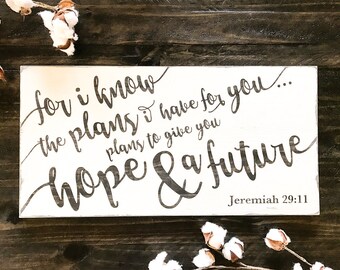 for i know
the plans i have for you...
plans to give you
hope & a future
Jeremiah 29:11